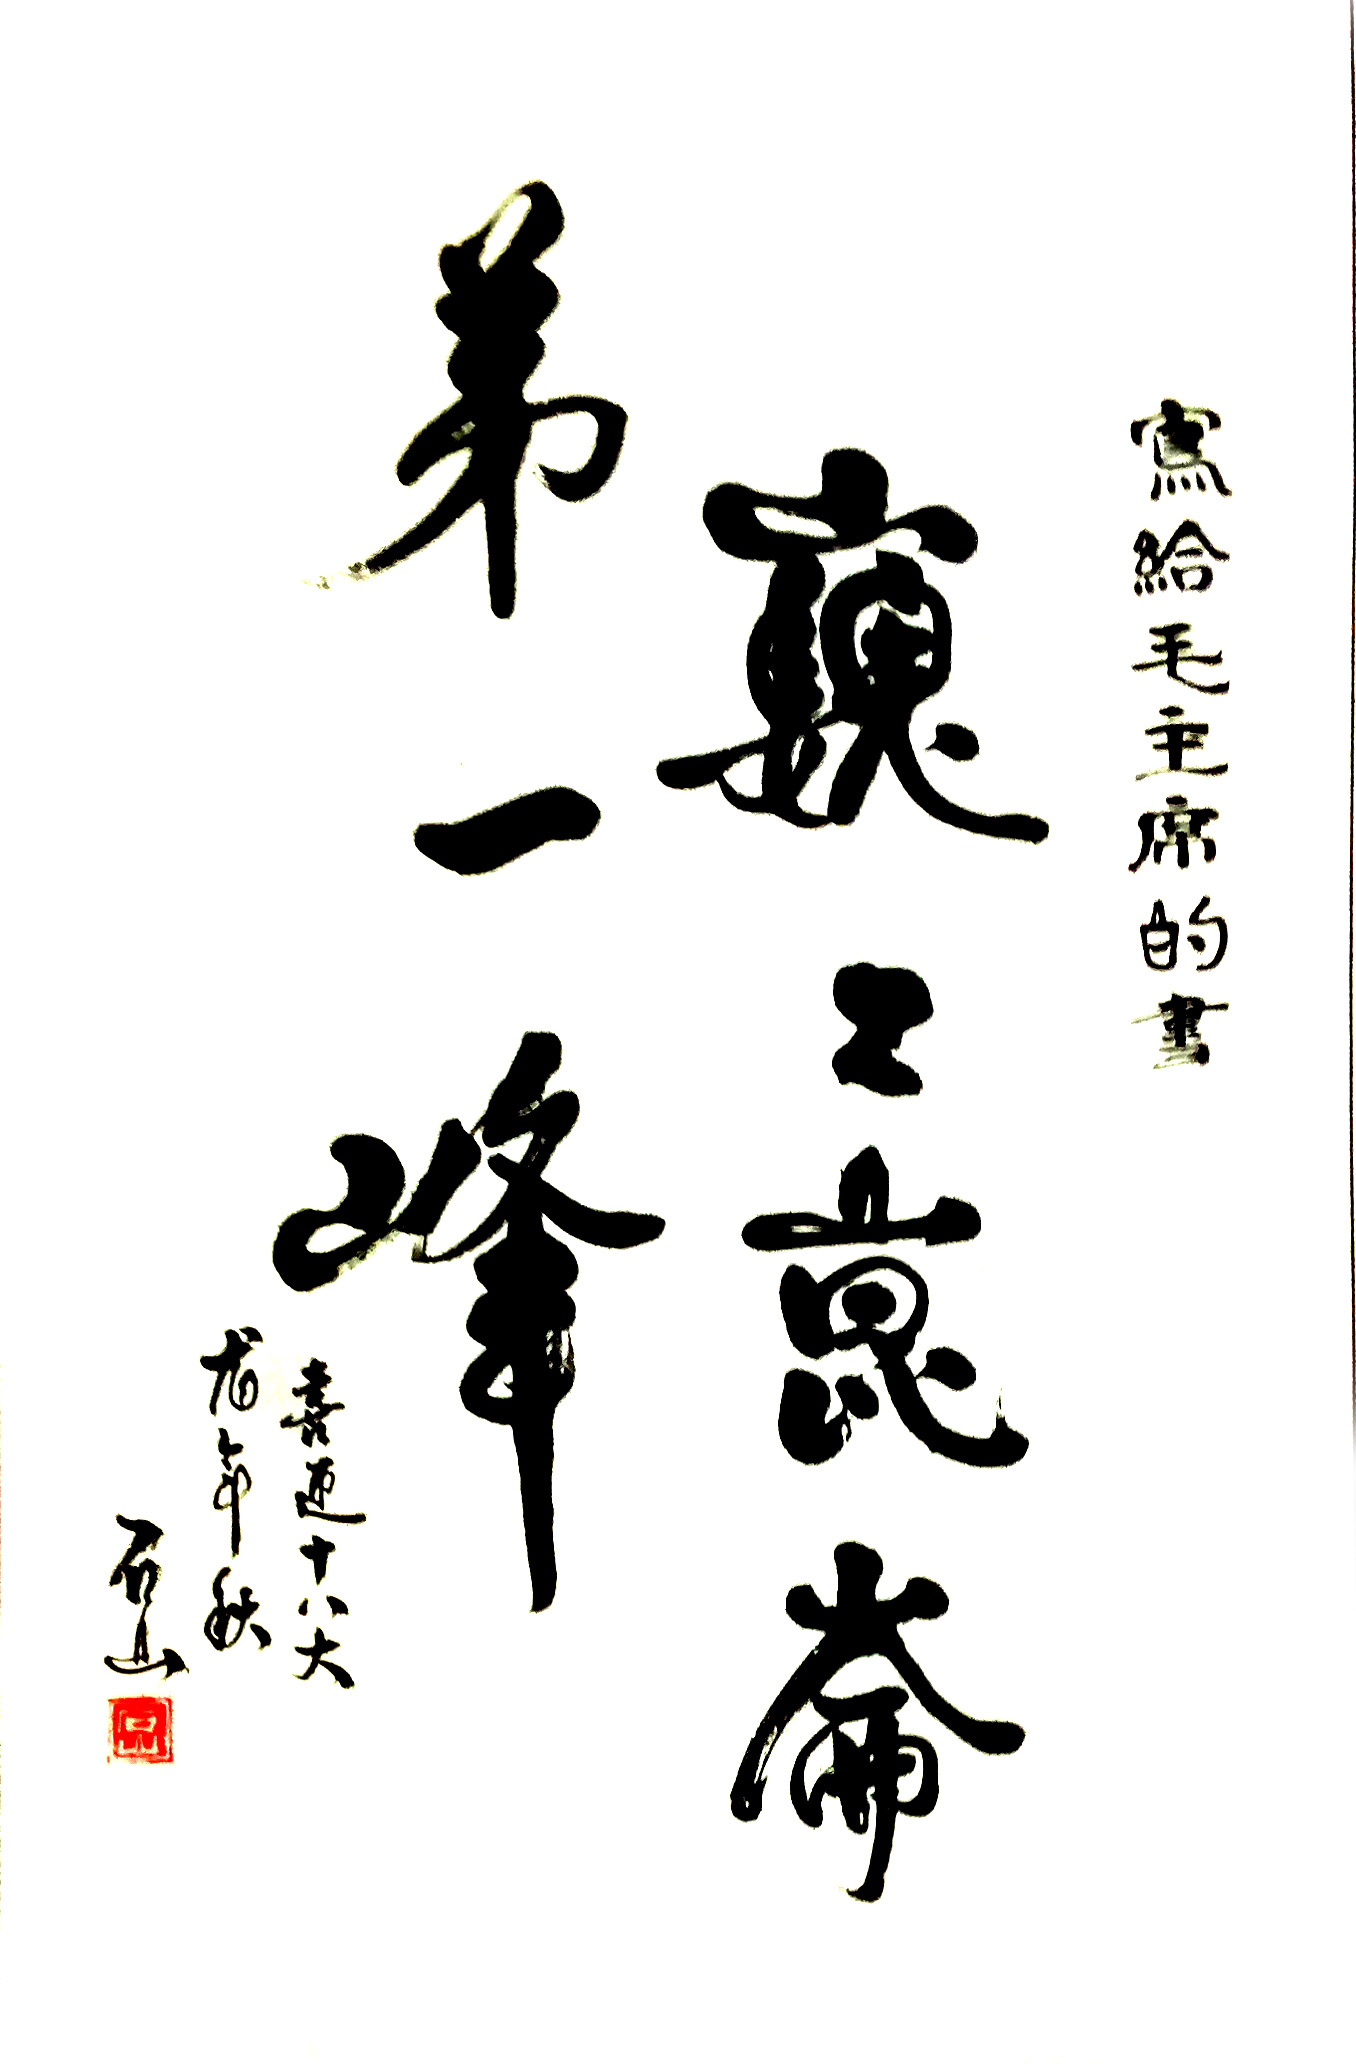 寫給毛主席的書
巍〻崑崙
第一峰
喜迎十八大
龙年秋
石山